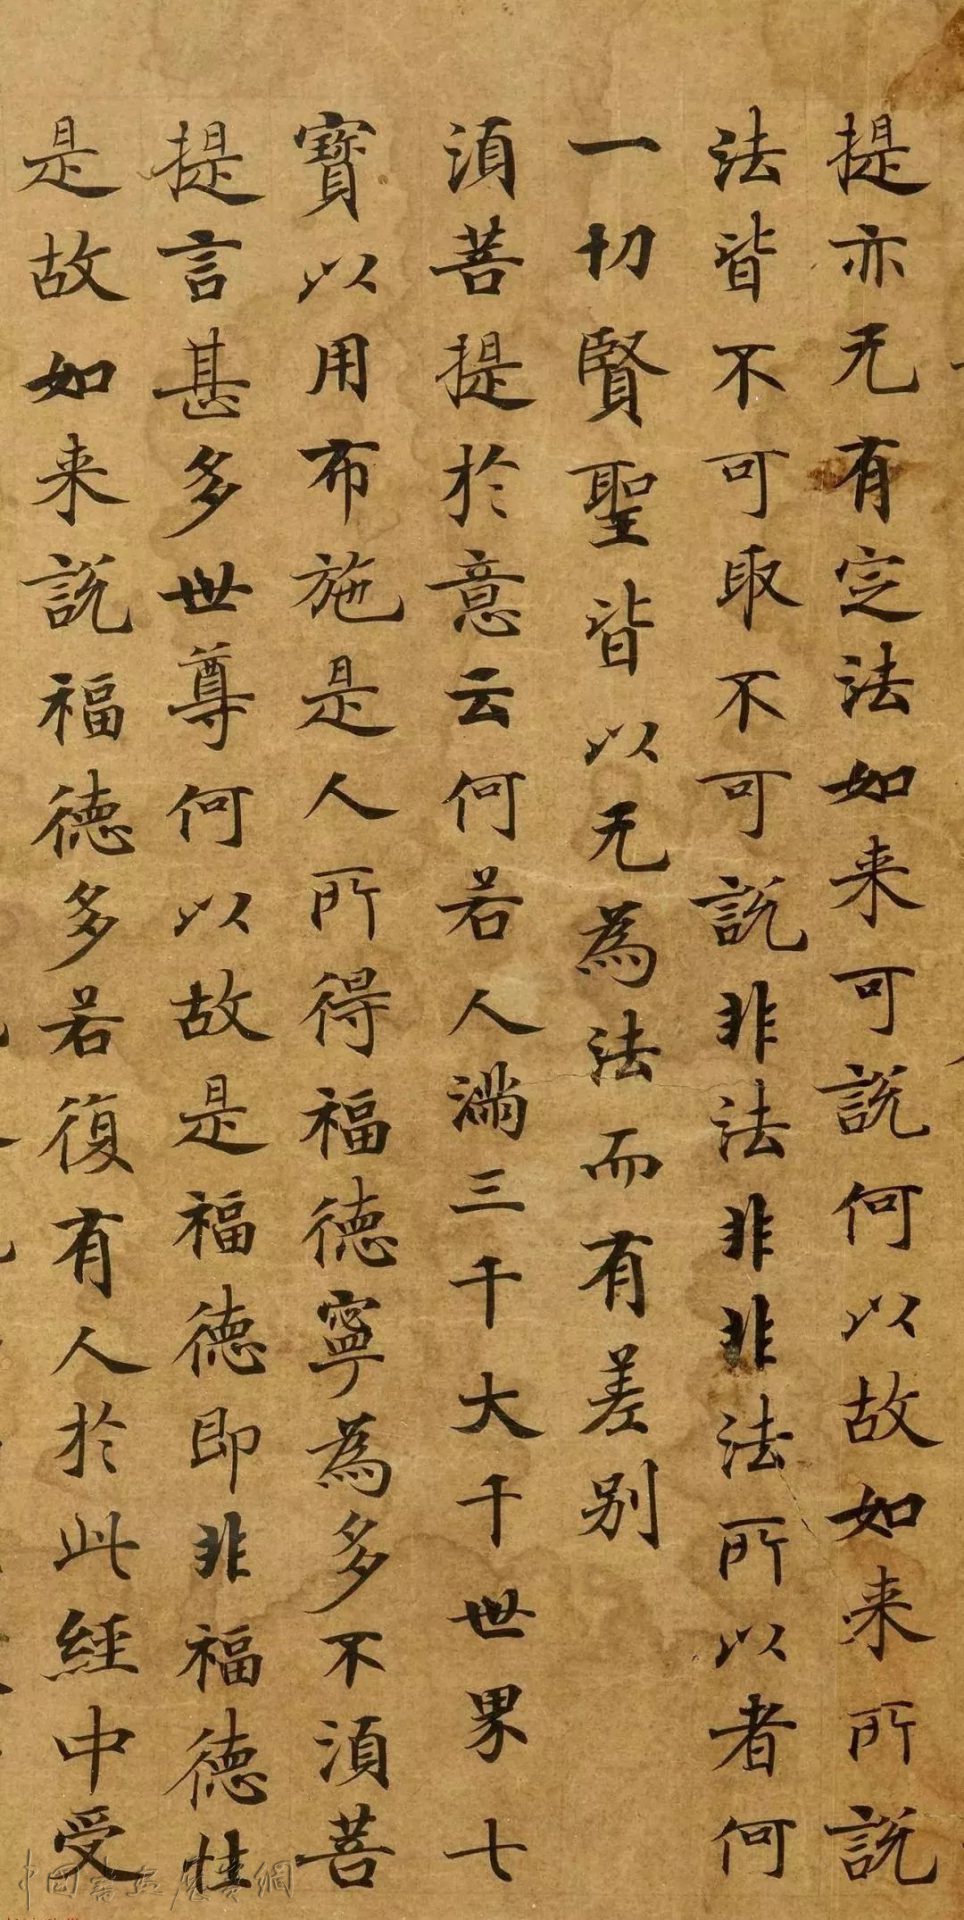 提亦无有定法如来可說何以故如来所說
法皆不可取不可說非法非非法所以者何
一切賢聖皆以无為法而有差别
湏菩提於意云何若人滿三千大千世界七
寶以用布施是人所得福德寧為多不湏菩
提言甚多世尊何以故是福德即非福德性
是故如来說福德多若復有人於此經中受